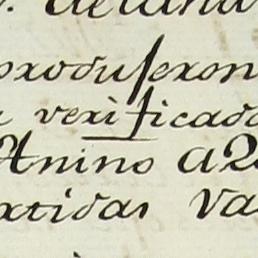 produseron
verificado
Anino a2
xtidas Va